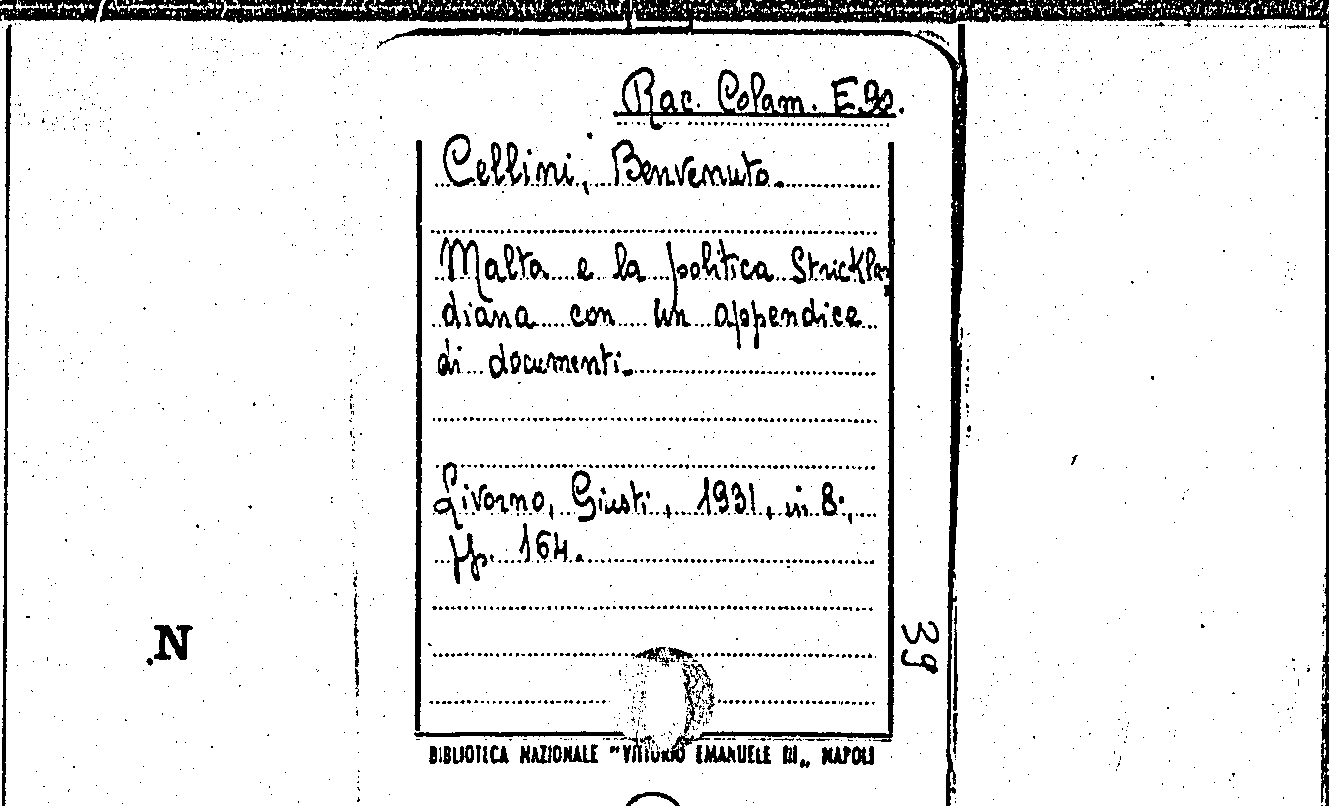 Rac. Colam. E.92.
Cellini, Benvenuto.
Malta e la politica Stricklan
diana con un appendice
di documenti.
Livorno, Giusti, 1931, in 8.,
pp. 164.
39
N
BIBLIOTECA NAZIONALE "VITTORIO EMANUELE III„ NAPOLI